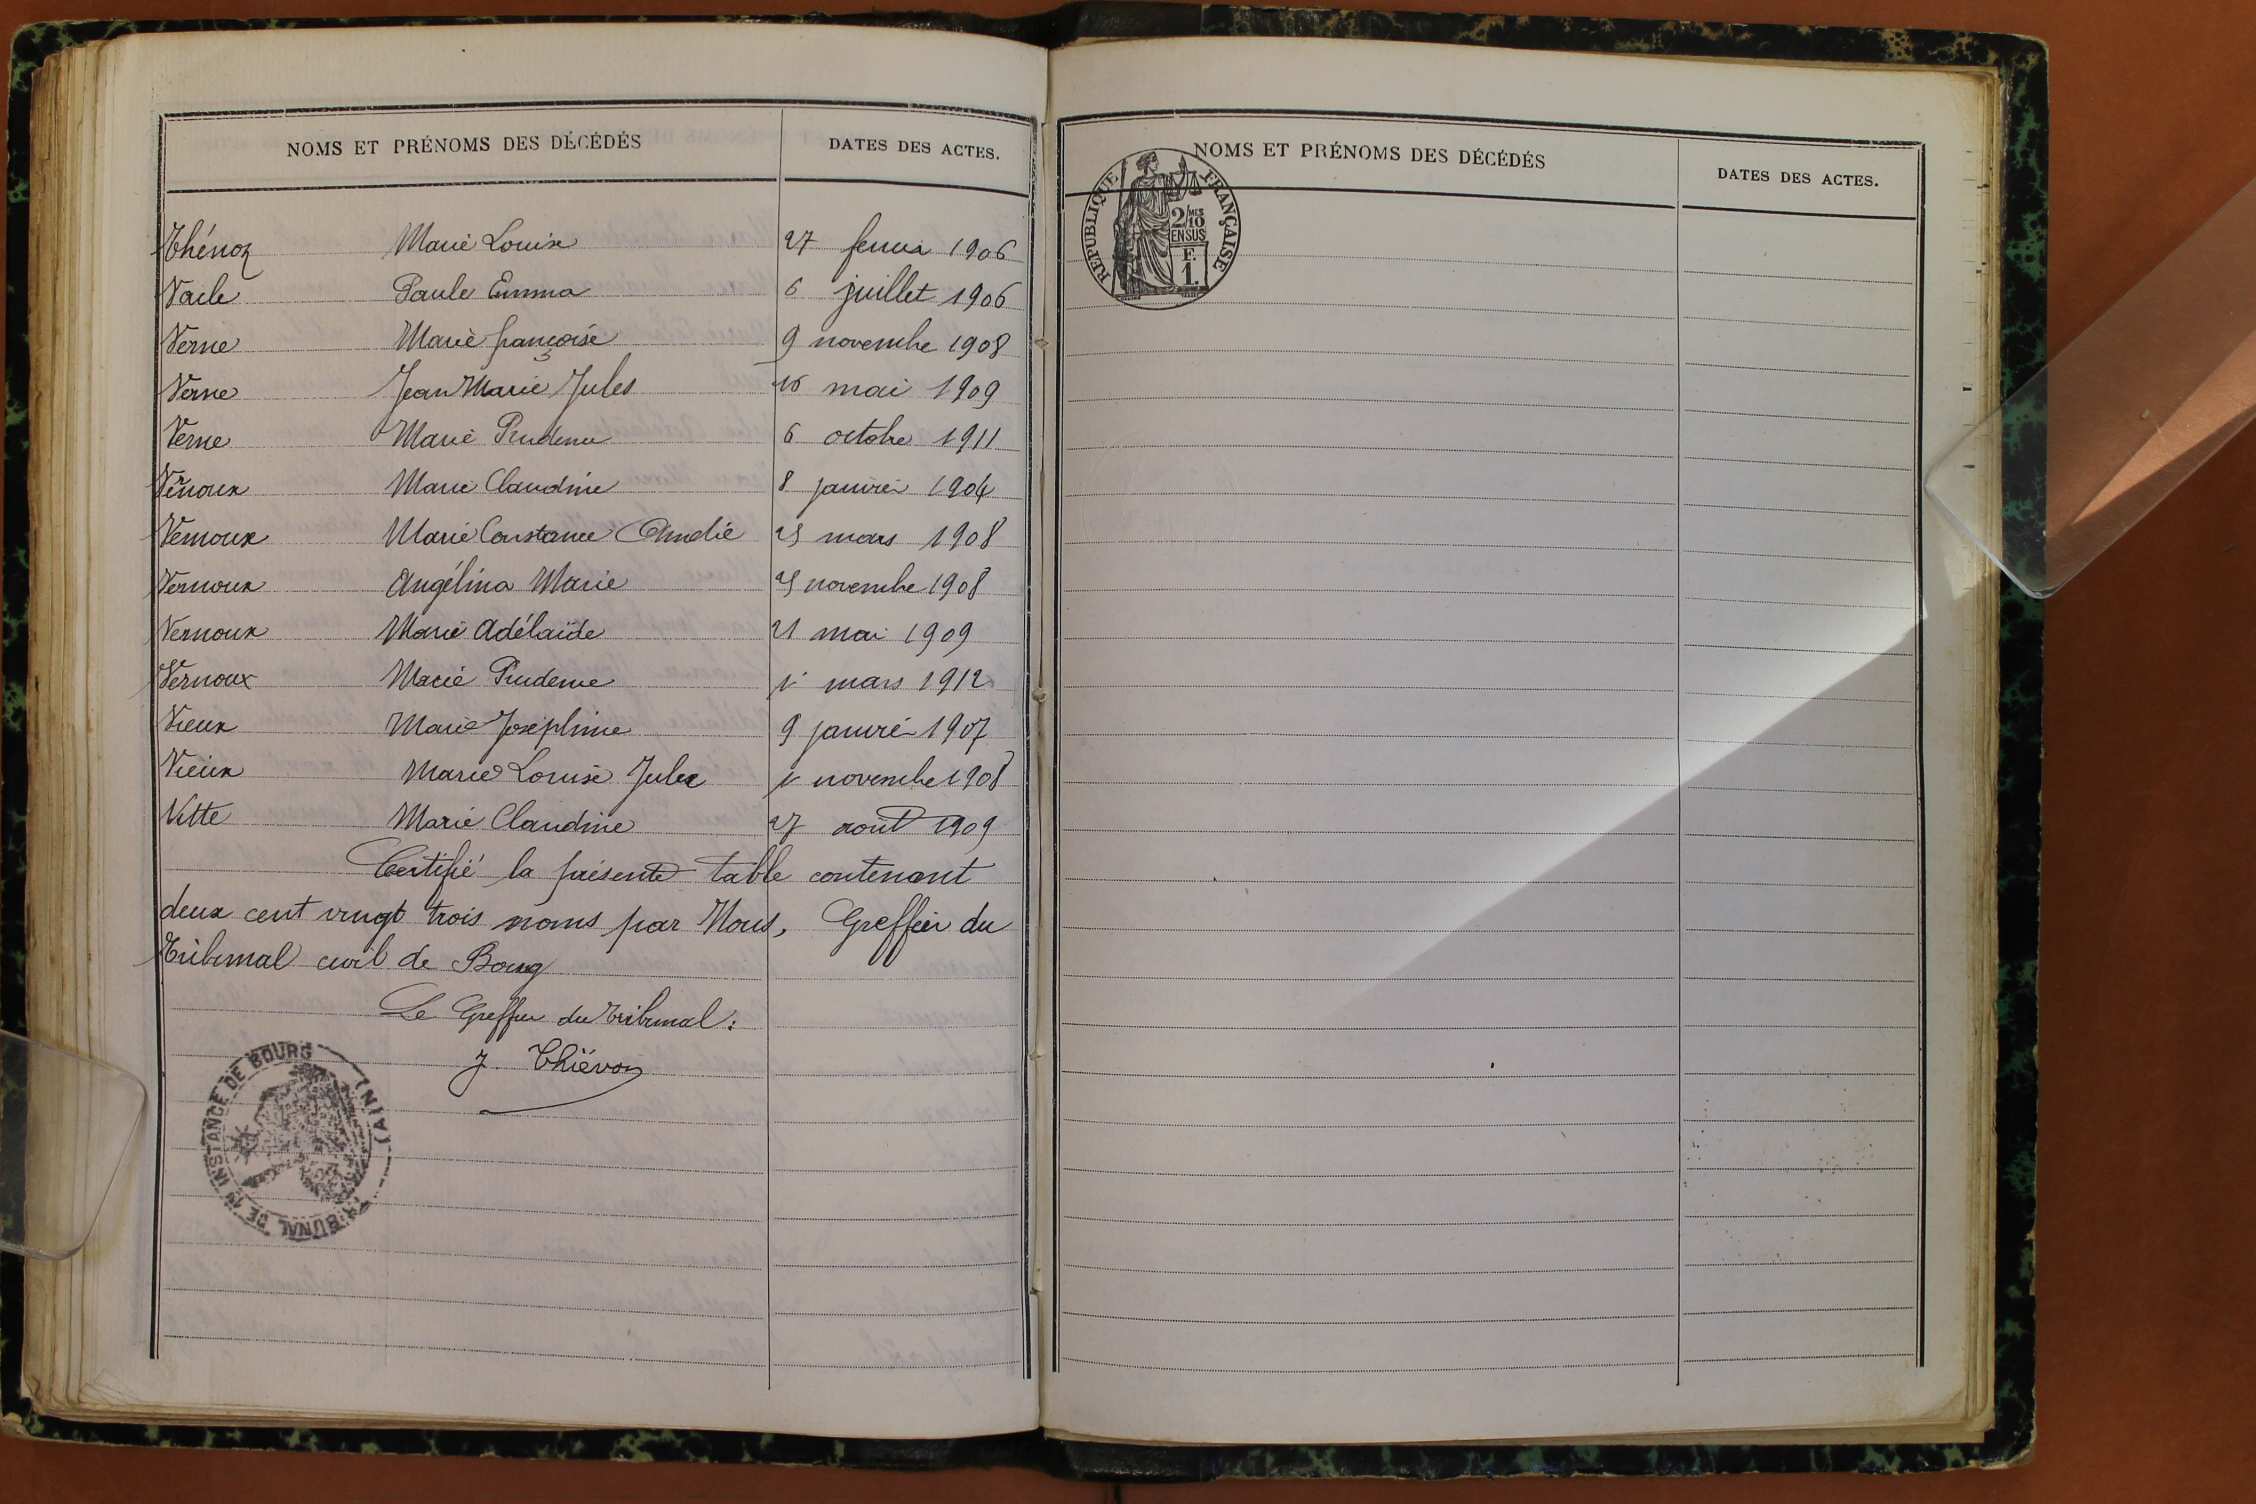 NOMS ET PRÉNOMS DES DÉCÉDÉS DATES DES ACTES.
Thénoz Marie Louise 27 fevrier 1906
Vaile Paule Emma 6 juillet 1906
Verne Marie françoise 9 novembre 1908
Verne Jean Marie Jules 16 mai 1909
Verne Marie Prudence 6 octobre 1911
Vernoux Marie Claudine 8 janvier 1904
Vernoux Marie Constance Amelie 25 mars 1908
Vernoux Angélina Marie 25 novembre 1908
Vernoux Marie Adélaïde 21 mai 1909
Vernoux Marie Prudence 1r mars 1912
Vieux Marie Joséphine 9 janvier 1907
Vieux Marie Louise Julie 1r novembre 1908
Vitte Marie Claudine 27 août 1909
Certifié la présente table contenant
deux cent vingt trois noms par Nous, Greffier du
Tribunal civil de Bourg
Le Greffier du Tribunal:
J. Thiévon
TRIBUNAL DE 1re INSTANCE DE BOURG (AIN)
NOMS ET PRÉNOMS DES DÉCÉDÉS DATES DES ACTES.
RÉPUBLIQUE FRANÇAISE
2/10 MES
EN SUS
F.
1.